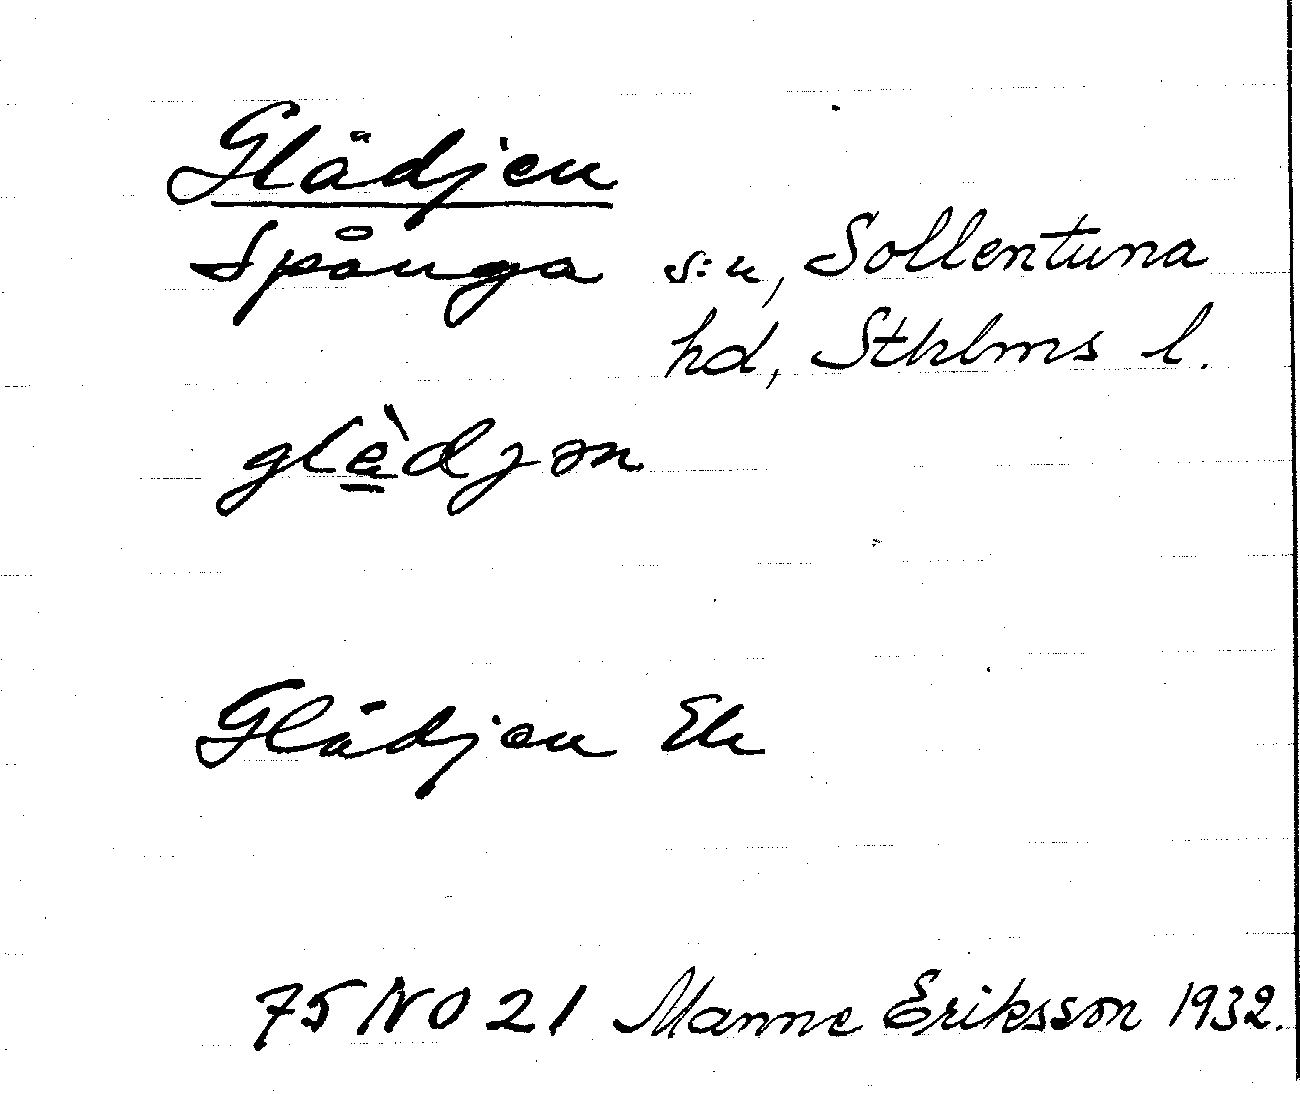 Glädjen
Spånga s:n, Sollentuna
hd, Sthlms l.
glèdjən
Glädjen Ek
75 NO 21 Manne Eriksson 1932.